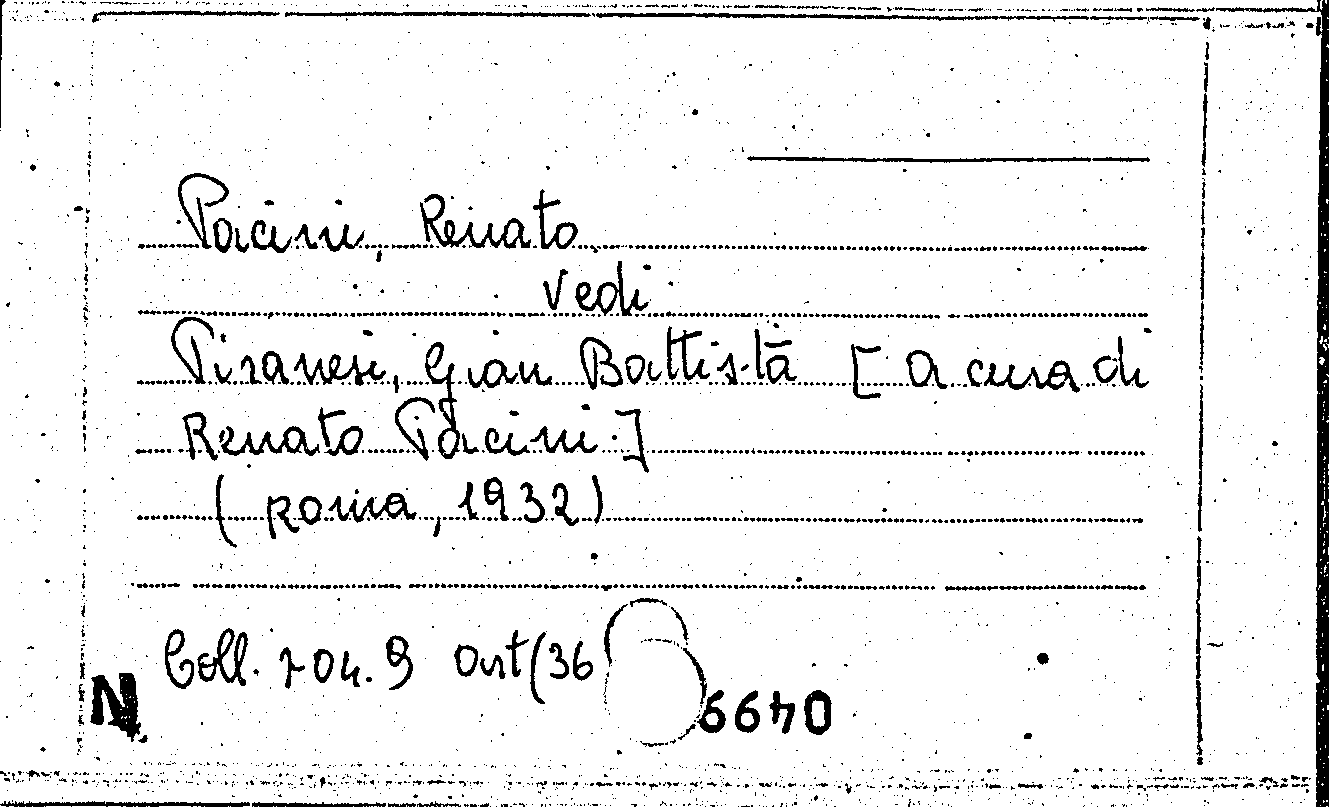 Pacini, Renato
vedi
Piranesi, Gian Battista [A cura di
Renato Pacini.]
(Roma, 1932)
Coll. 9 Art(36
N 0499